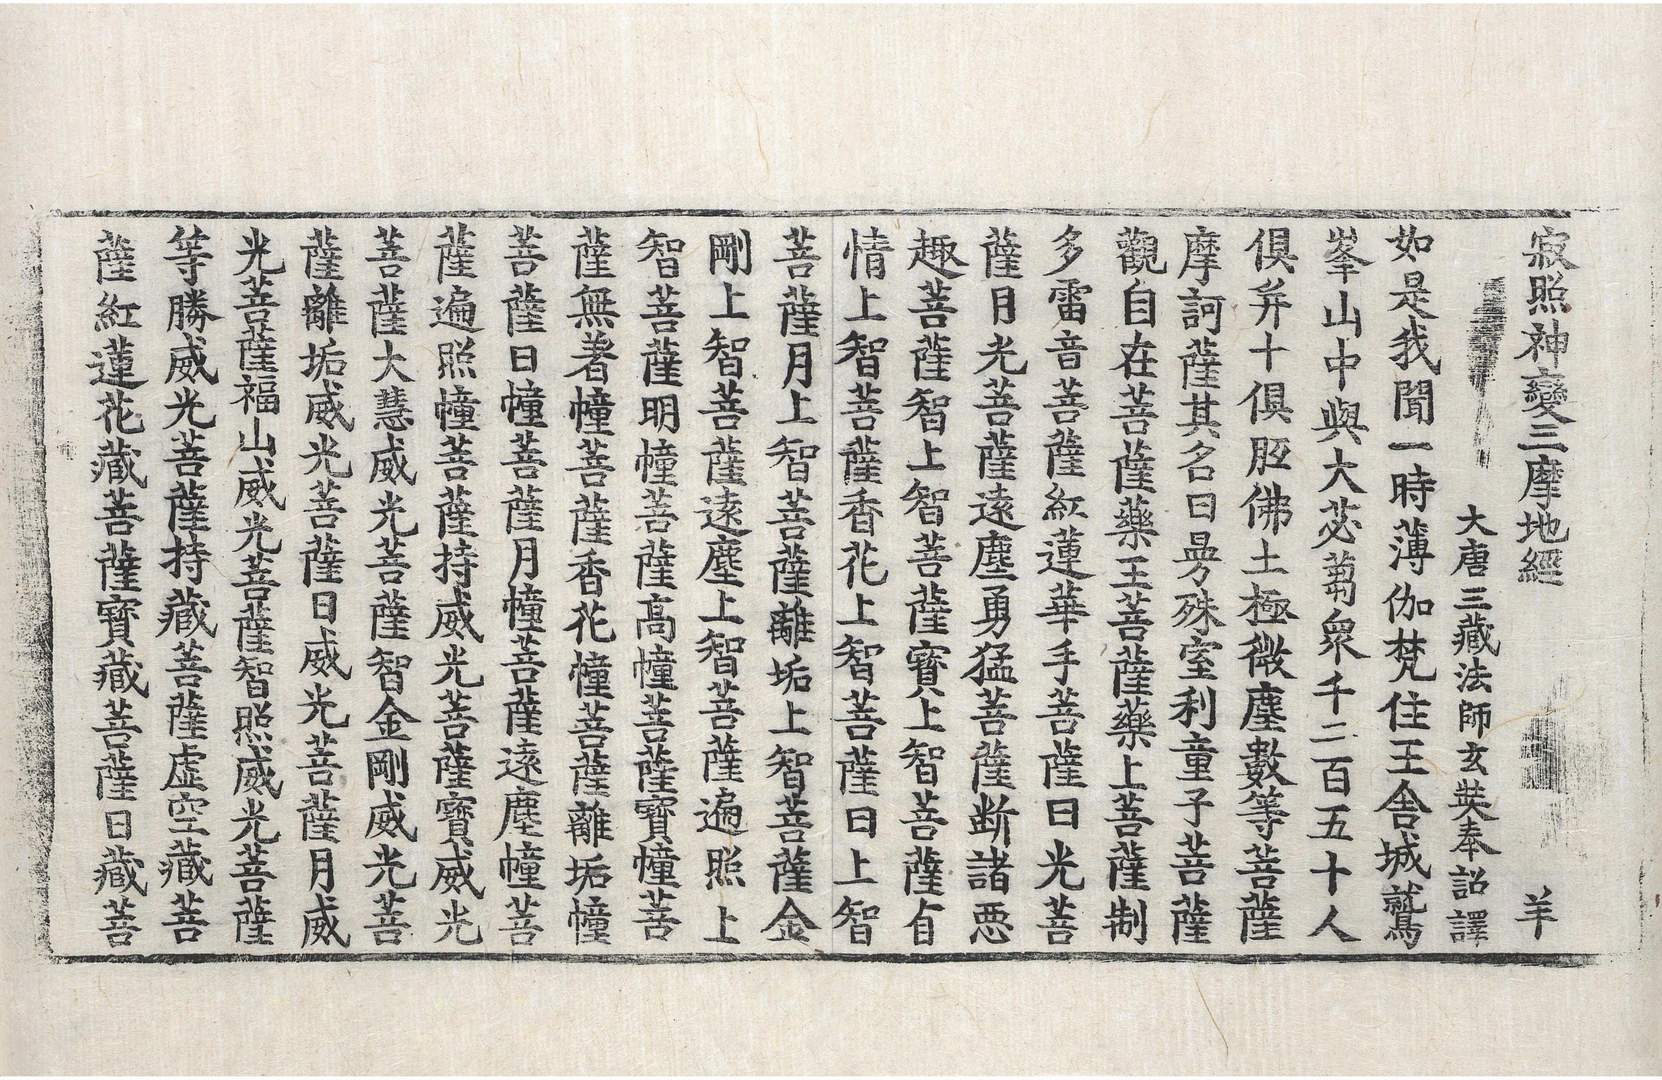 寂照神變三摩地經 羊
大唐三藏法師玄奘奉詔譯
如是我聞一時薄伽梵住王舍城鷲
峯山中與大苾蒭衆千二百五十人
俱并十俱胝佛土極微塵數等菩薩
摩訶薩其名曰曼殊室利童子菩薩
觀自在菩薩藥王菩薩藥上菩薩制
多雷音菩薩紅蓮華手菩薩日光菩
薩月光菩薩遠塵勇猛菩薩断諸惡
趣菩薩智上智菩薩寶上智菩薩貞
情上智菩薩香花上智菩薩日上智
菩薩月上智菩薩離垢上智菩薩金
剛上智菩薩遠塵上智菩薩遍照上
智菩薩明幢菩薩高幢菩薩寶幢菩
薩無著幢菩薩香花幢菩薩離垢幢
菩薩日幢菩薩月幢菩薩遠塵幢菩
薩遍照幢菩薩持威光菩薩寶威光
菩薩大慧威光菩薩智金剛威光菩
薩離垢威光菩薩日威光菩薩月威
光菩薩福山威光菩薩智照威光菩薩
等勝威光菩薩持藏菩薩虛空藏菩
薩紅蓮花藏菩薩寶藏菩薩日藏菩